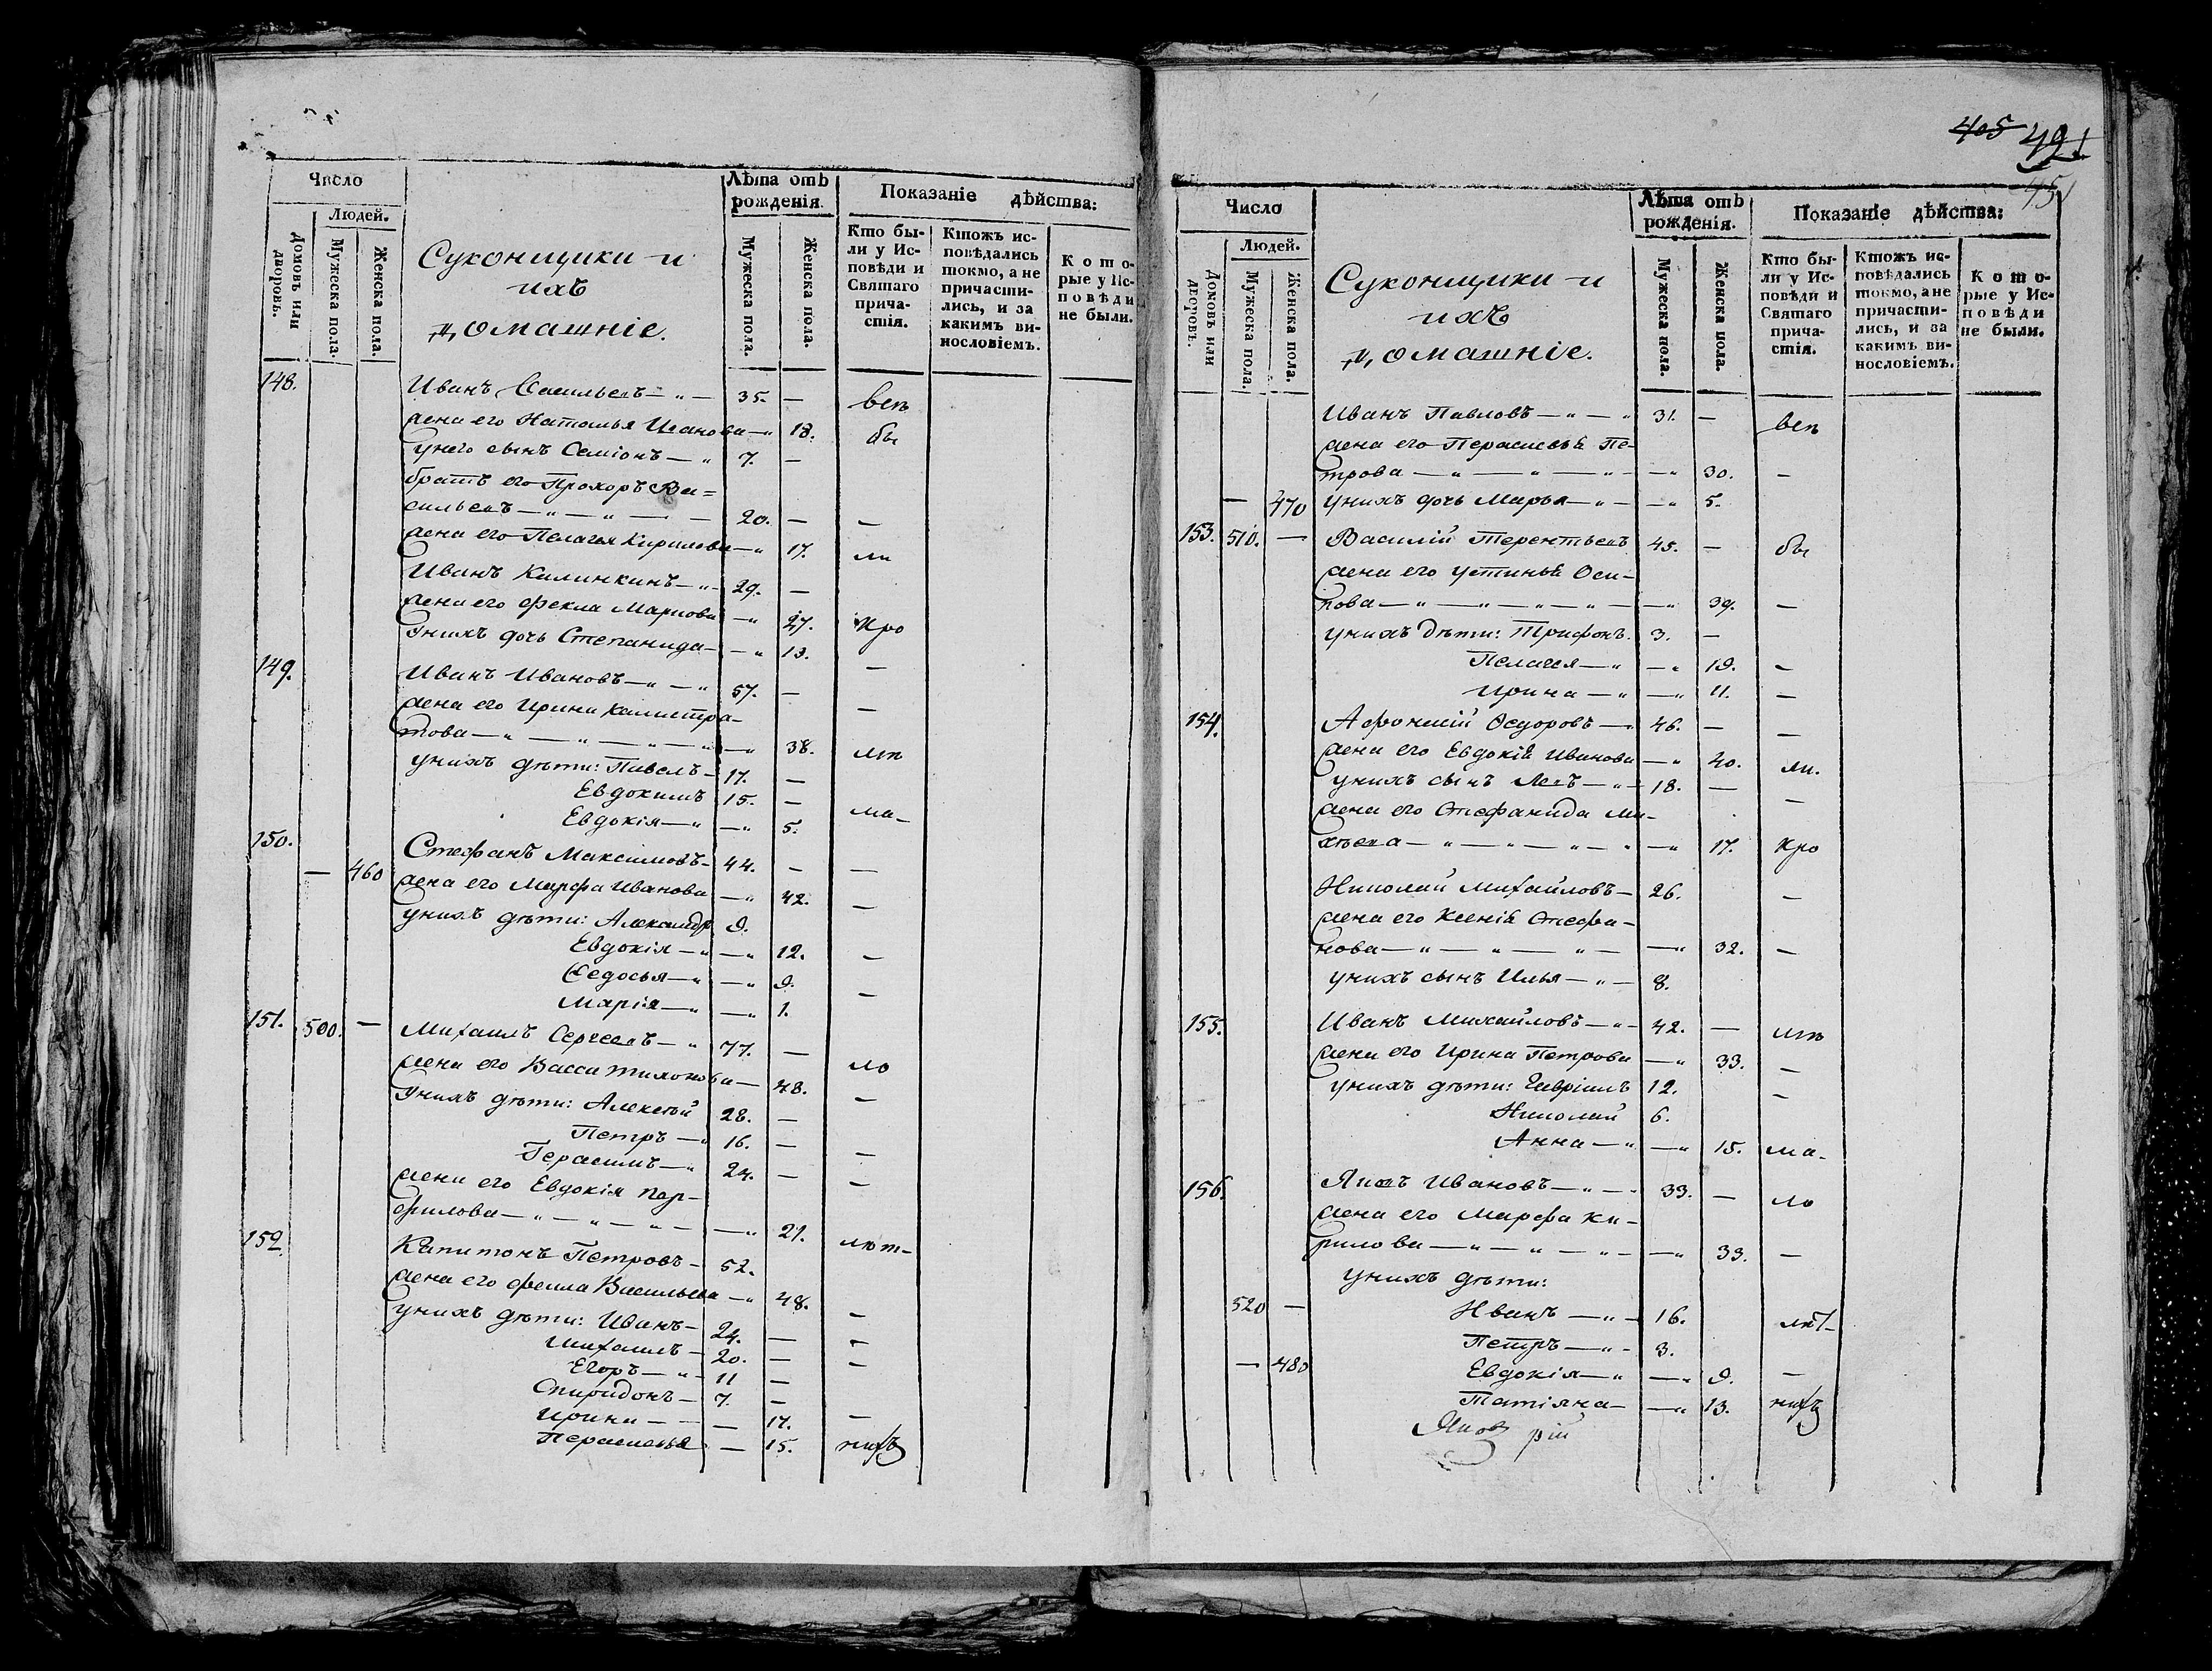 Число
Людей.
Домовъ или дворовъ.
Мужеска пола.
Женска пола.
Суконщики и
ихъ
домашніе.
Лѣта отъ
рожденія.
Мужеска пола.
Женска пола.
Показаніе дѣйства:
Кто бы-
ли у Ис-
повѣди и
Святаго
прича-
стія.
Ктожъ ис-
повѣдались
токмо, а не
причасти-
лись, и за
какимъ ви-
нословіемъ.
Кото-
рые у Ис-
повѣди
не были.
148. Иванъ Васильевъ — „ — 35. — всѣ
жена его Наталья Иванова — „ 18. бы
у него сынъ Семіонъ — „ 7. —
братъ его Прохоръ Ва=
сильевъ — „ — „ — — 20. — —
жена его Пелагея Кирилова — „ 17. ли
Иванъ Калинкинъ — „ 29. —
жена его Фекла Маркова — „ 27. кро
у нихъ дочь Степанида — — „ 13. —
149. Иванъ Ивановъ — „ — „ 57. — —
жена его Ирина Калистра-
това — „ — „ — „ — „ — „ 38. мѣ
у нихъ дѣти: Павелъ — 17. —
Евдокимъ 15. —
Евдокія — „ — „ 5. ма-
150. Стефанъ Максимовъ — 44. — —
— 460 жена его Марфа Иванова — „ 42. —
у нихъ дѣти: Александръ 9.
Евдокія — „ — „ 12. —
Ѳедосья — „ — „ 9. —
Марія — „ — „ 1.
151. 500. — Михаилъ Сергеевъ — „ 77. — ло
жена его Васса Тихонова — 48. —
у нихъ дѣти: Алексѣй 28. —
Петръ — „ 16. — —
Герасимъ — „ 24. — —
жена его Евдокія Пор-
фирова — „ — „ — „ — — „ 21. лѣт-
152. Капитонъ Петровъ — 52.
жена его Фекла Васильева — „ 48. —
у нихъ дѣти: Иванъ — 24. — —
Михаилъ — 20. — —
Егоръ — „ — 11 —
Спиридонъ — 7. —
Ирина — — — 17. —
Параскевья — 15. нихъ
405 491
451
Число
Людей.
Домовъ или дворовъ.
Мужеска пола.
Женска пола.
Суконщики и
ихъ
домашніе.
Лѣта отъ
рожденія.
Мужеска пола.
Женска пола.
Показаніе дѣйства:
Кто бы-
ли у Ис-
повѣди и
Святаго
прича-
стія.
Ктожъ ис-
повѣдались
токмо, а не
причасти-
лись, и за
какимъ ви-
нословіемъ.
Кото-
рые у Ис-
повѣди
не были.
Иванъ Павловъ — „ — „ 31. — всѣ
жена его Перасковья Пе-
трова — „ — „ — „ — — „ 30. —
— 470 у нихъ дочь Марья — „ — — „ 5.
153. 510. — Василій Терентьевъ 45. — бы
жена его Устинья Оси-
пова — „ — „ — „ — „ — — „ 39. —
у нихъ дѣти: Трифонъ. 3. —
Пелагея — „ — „ 19. —
Ирина — „ — „ 11. —
154. Афонасій Ѳедоровъ — 46. — —
жена его Евдокія Иванова — „ 40. ли.
у нихъ сынъ Левъ — „ — 18. — —
жена его Стефанида Ми-
хѣева — „ — „ — „ — „ — „ 17. кро
Николай Михайловъ — 26. —
жена его Ксенія Стефа-
нова — „ — „ — „ — — „ 32. —
у нихъ сынъ Илья — „ — 8.
155. Иванъ Михайловъ — „ — 42. — мѣ
жена его Ирина Петрова — „ 33. —
у нихъ дѣти: Гавріилъ 12. —
Николай 6.
Анна — „ — „ 15. ма-
156. Яковъ Ивановъ — „ — „ 33. — ло
жена его Марфа Ки-
рилова — „ — „ — „ — — „ 33. —
у нихъ дѣти:
520 — Иванъ — „ — 16. лѣт-
Петръ — „ — 3.
— 480 Евдокія — „ — „ 9. —
Татіяна — — „ 13. нихъ